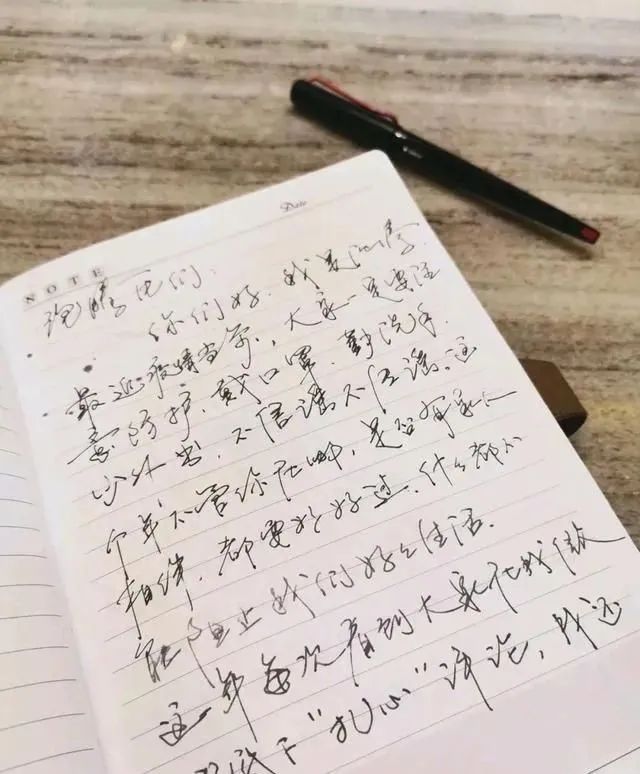 NOTE
Date
晚晴 们：
你们好，我是
最近疫情当前，大家一定要注
意防护，戴口罩，勤洗手，
少外出，不信谣不传谣。这
个年不管你在哪，是否有家人
相伴，都要好好过，什么都不
能阻止我们好好生活。
这年每次看到大家在我微
底下“扎心”评论，我还